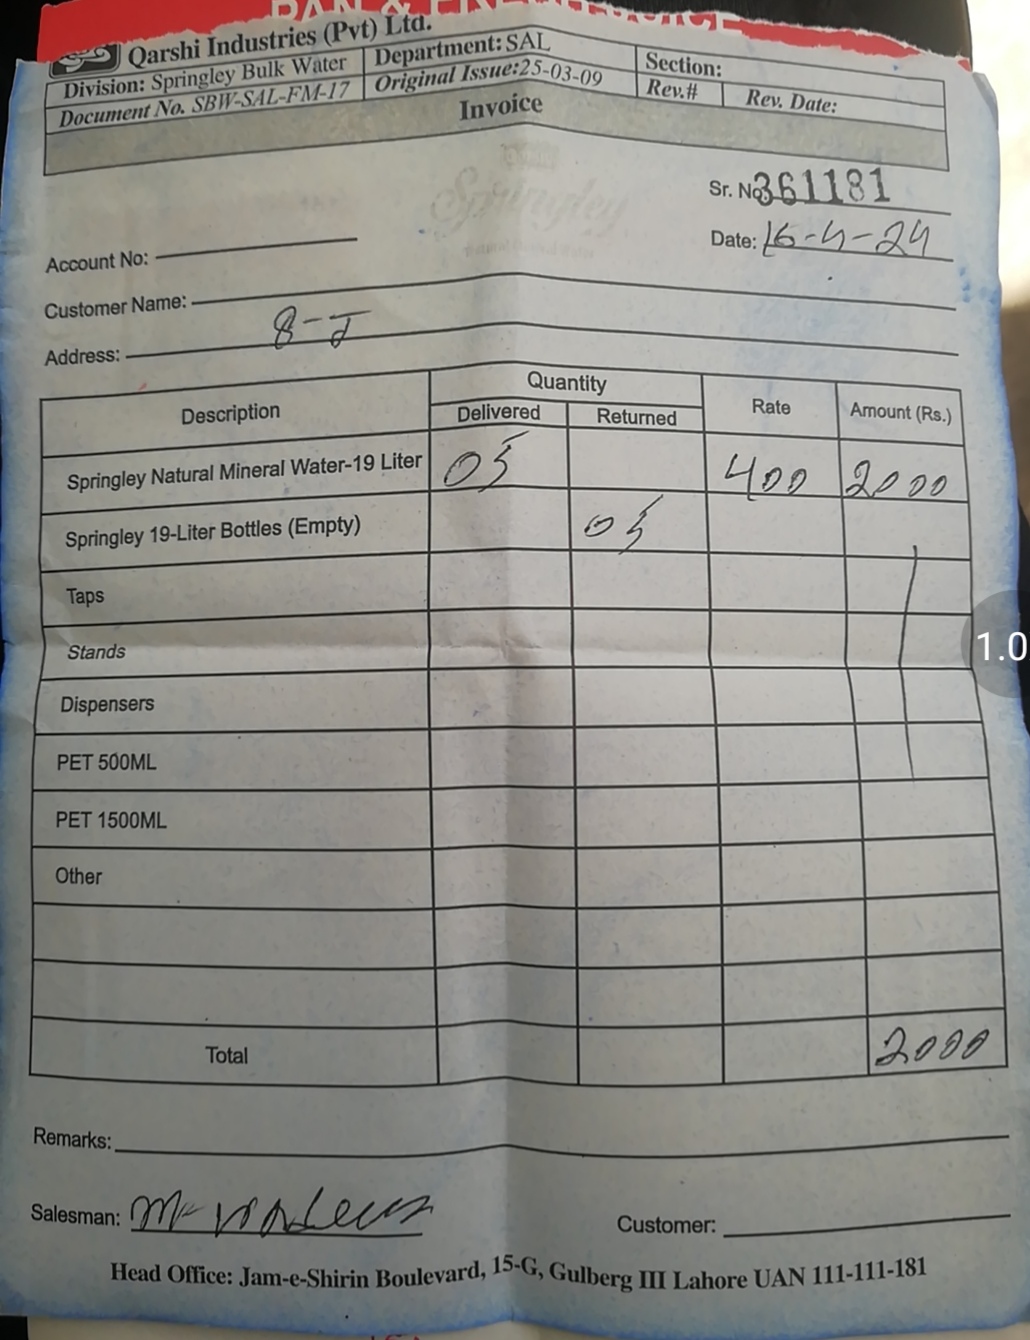 Qarshi Industries (Pvt) Ltd.
Division: Springley Bulk Water Department: SAL Section:
Document No. SBW-SAL-FM-17 Original Issue:25-03-09 Rev.# Rev. Date:
Invoice
Springley
Sr. No 361181
Date: 16-4-24
Account No:
Customer Name:
Address: 8-J
Description Quantity Rate Amount (Rs.)
Delivered Returned
Springley Natural Mineral Water-19 Liter 05 400 2000
Springley 19-Liter Bottles (Empty) 05
Taps
Stands
Dispensers
PET 500ML
PET 1500ML
Other
Total 2000
Remarks:
Salesman:
Customer:
Head Office: Jam-e-Shirin Boulevard, 15-G, Gulberg III Lahore UAN 111-111-181
1.0